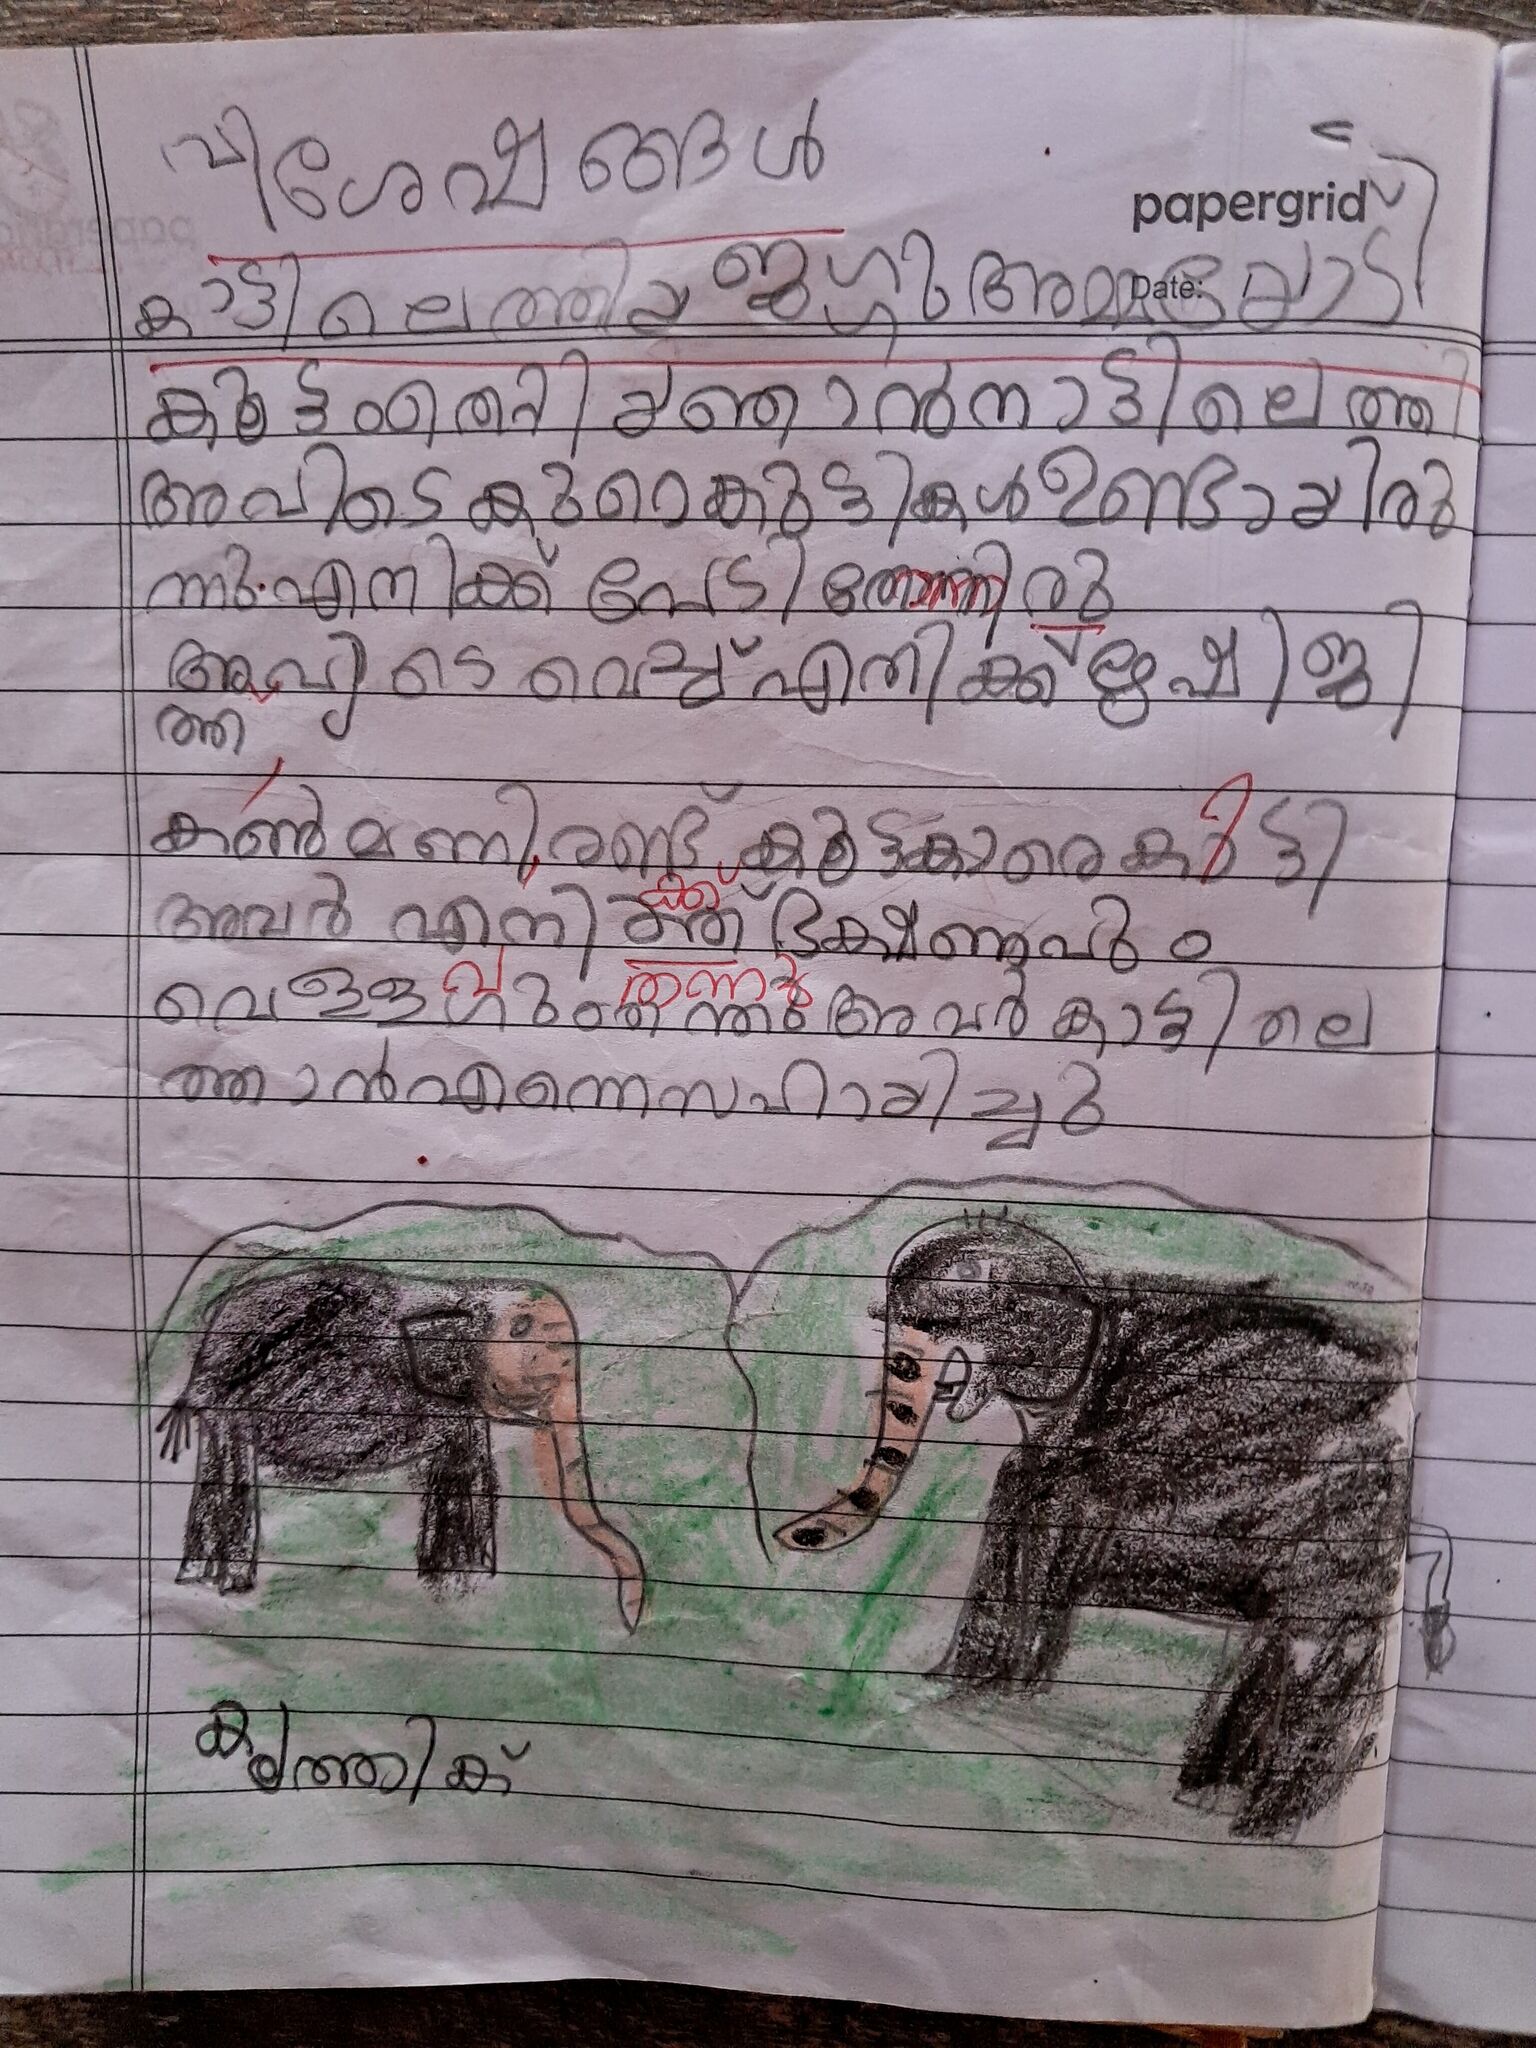 വിശേഷങ്ങൾ
papergrid
Date:
കാട്ടിലെത്തിയ ജഗ്ഗു
കൂട്ടംതെറ്റിയ ഞാൻ നാട്ടിലെത്തി
അവിടെ കുറെ കുട്ടികൾ ഉണ്ടായിരു
ന്നു. എനിക്ക് പേടി തോന്നി
അവിടെ വെച്ച് എനിക്ക്
കൺമണി, രണ്ട് കൂട്ടകാരെ കിട്ടി
ക്ക്
അവർ എനി ത്ത് ഭക്ഷണവും
വ തന്നു
വെള്ളഗും തന്നു അവർ കാട്ടിലെ
ത്താൻ എന്നെ സഹായിച്ചു
കാർത്തിക്